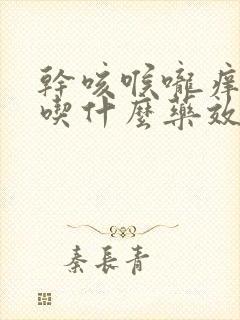 幹咳喉嚨癢
喫什麼藥效
秦長青